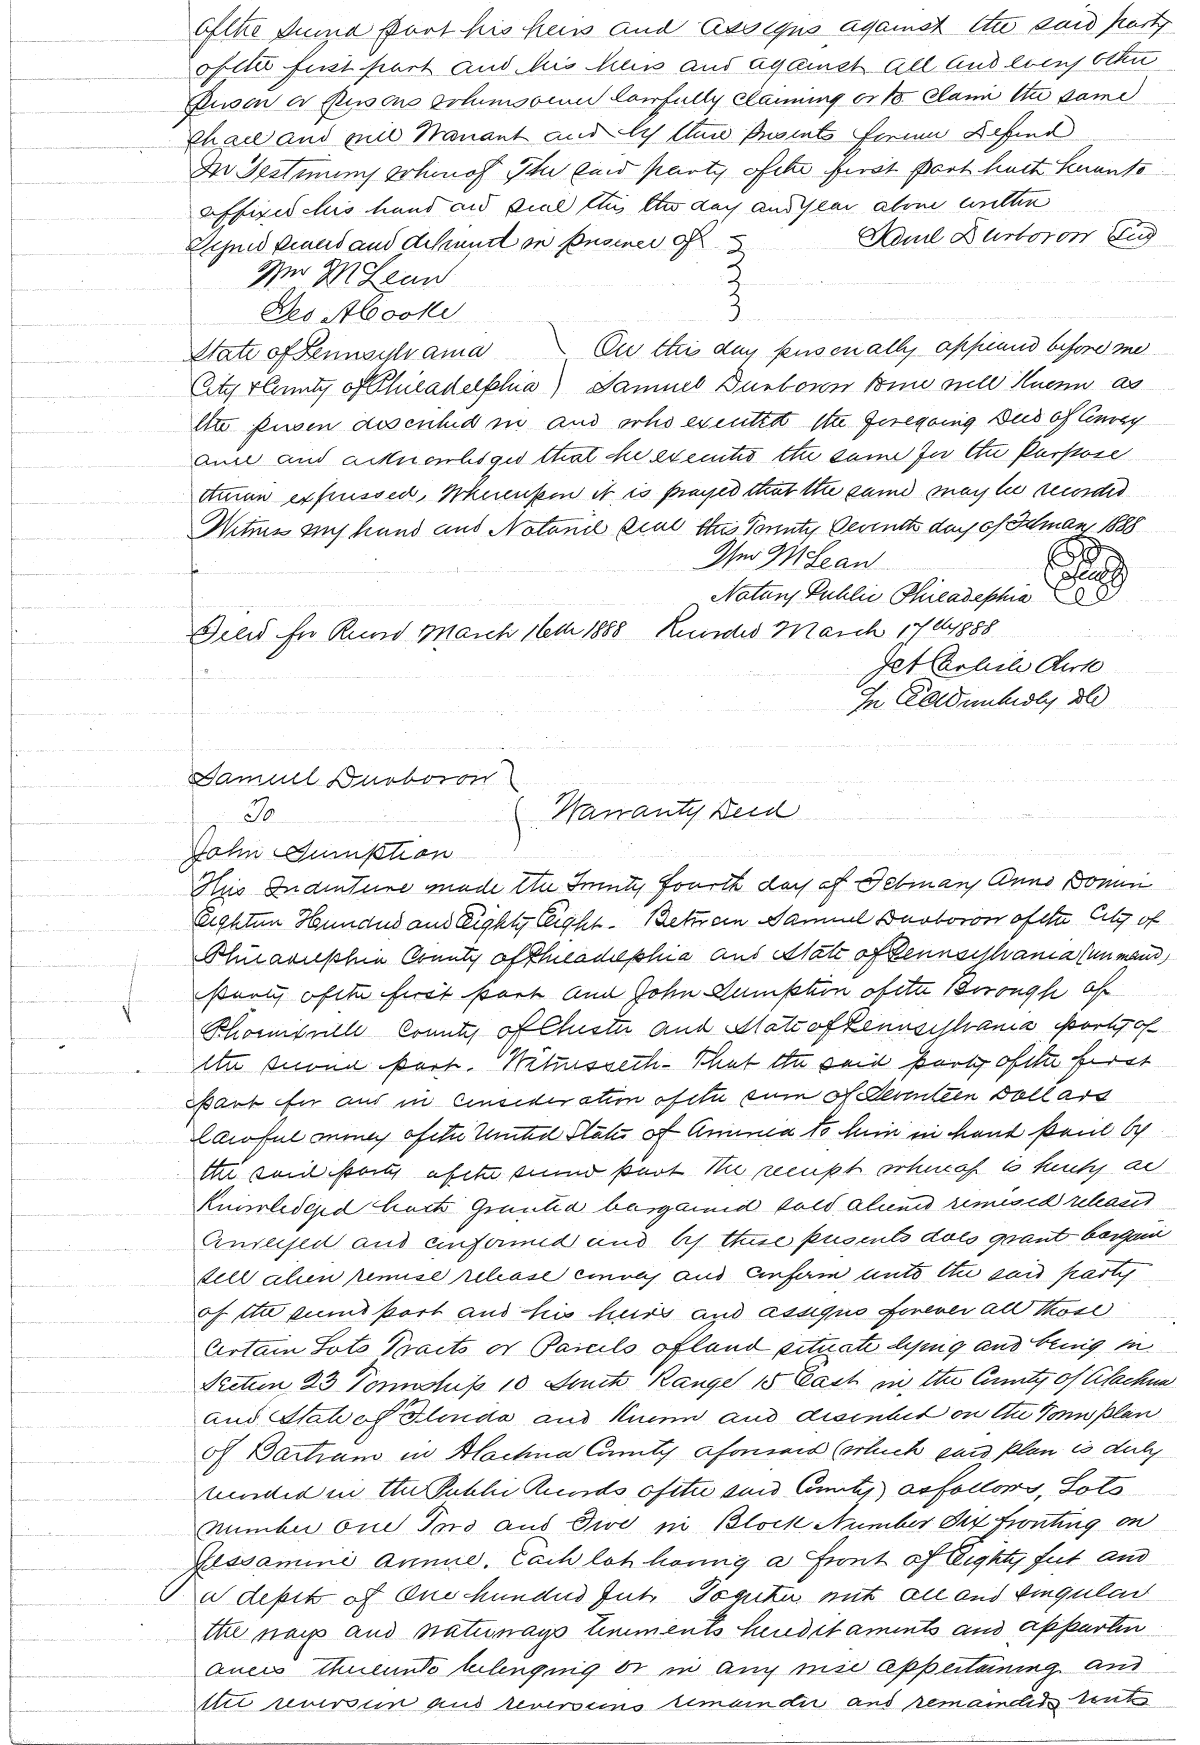 of the second part his heirs and assigns against the said party
of the first part and his heirs and against all and every other
person or persons whomsoever lawfully claiming or to claim the same
shall and will Warrant and by these Presents forever Defend
In Testimony whereof The said party of the first part hath hereunto
affixed his hand and seal this the day and year above written
Signed sealed and delivered in presence of Saml Durborow Seal
Wm McLean
Geo A Cooke
State of Pennsylvania On this day personally appeared before me
City & County of Philadelphia) Samuel Durborow to me well Known as
the person described in and who executed the foregoing Deed of Convey
ance and acknowledged that he executed the same for the Purpose
therein expressed, Whereupon it is prayed that the same may be recorded
Witness my hand and Notarial seal this Twenty Seventh day of February 1888
Wm McLean
Notary Public Philadelphia Seal
Filed for Record March 16th 1888 Recorded March 17th 1888
Clerk
In
Samuel Durborow
To
Warranty Deed
John Sumption
This Indenture made the Twenty fourth day of February Anno Domini
Eighteen Hundred and Eighty Eight. Between Samuel Durborow of the City of
Philadelphia County of Philadelphia and State of Pennsylvania (unmarried)
party of the first part and John Sumption of the Borough of
Phoenixville County of Chester and State of Pennsylvania party of
the second part. Witnesseth. That the said party of the first
part for and in consideration of the sum of Seventeen Dollars
lawful money of the United States of America to him in hand paid by
the said party of the second part the receipt whereof is hereby ac
Knowledged hath granted bargained sold aliened remised released
Conveyed and confirmed and by these presents does grant bargain
sell alien remise release convey and confirm unto the said party
of the second part and his heirs and assigns forever all those
Certain Lots Tracts or Parcels of land situate lying and being in
Section 23 Township 10 South Range 18 East in the County of Alachua
and State of Florida and Known and described on the Town plan
of Bartram in Alachua County aforesaid (which said plan is duly
recorded in the Public Records of the said County) as follows, Lots
number One Two and Five in Block Number Six fronting on
Jessamine Avenue. Each lot having a front of Eighty feet and
a depth of One hundred feet. Together with all and singular
the ways and waterways tenements hereditaments and appurten
ances thereunto belonging or in any wise appertaining and
the reversion and reversions remainder and remainders rents